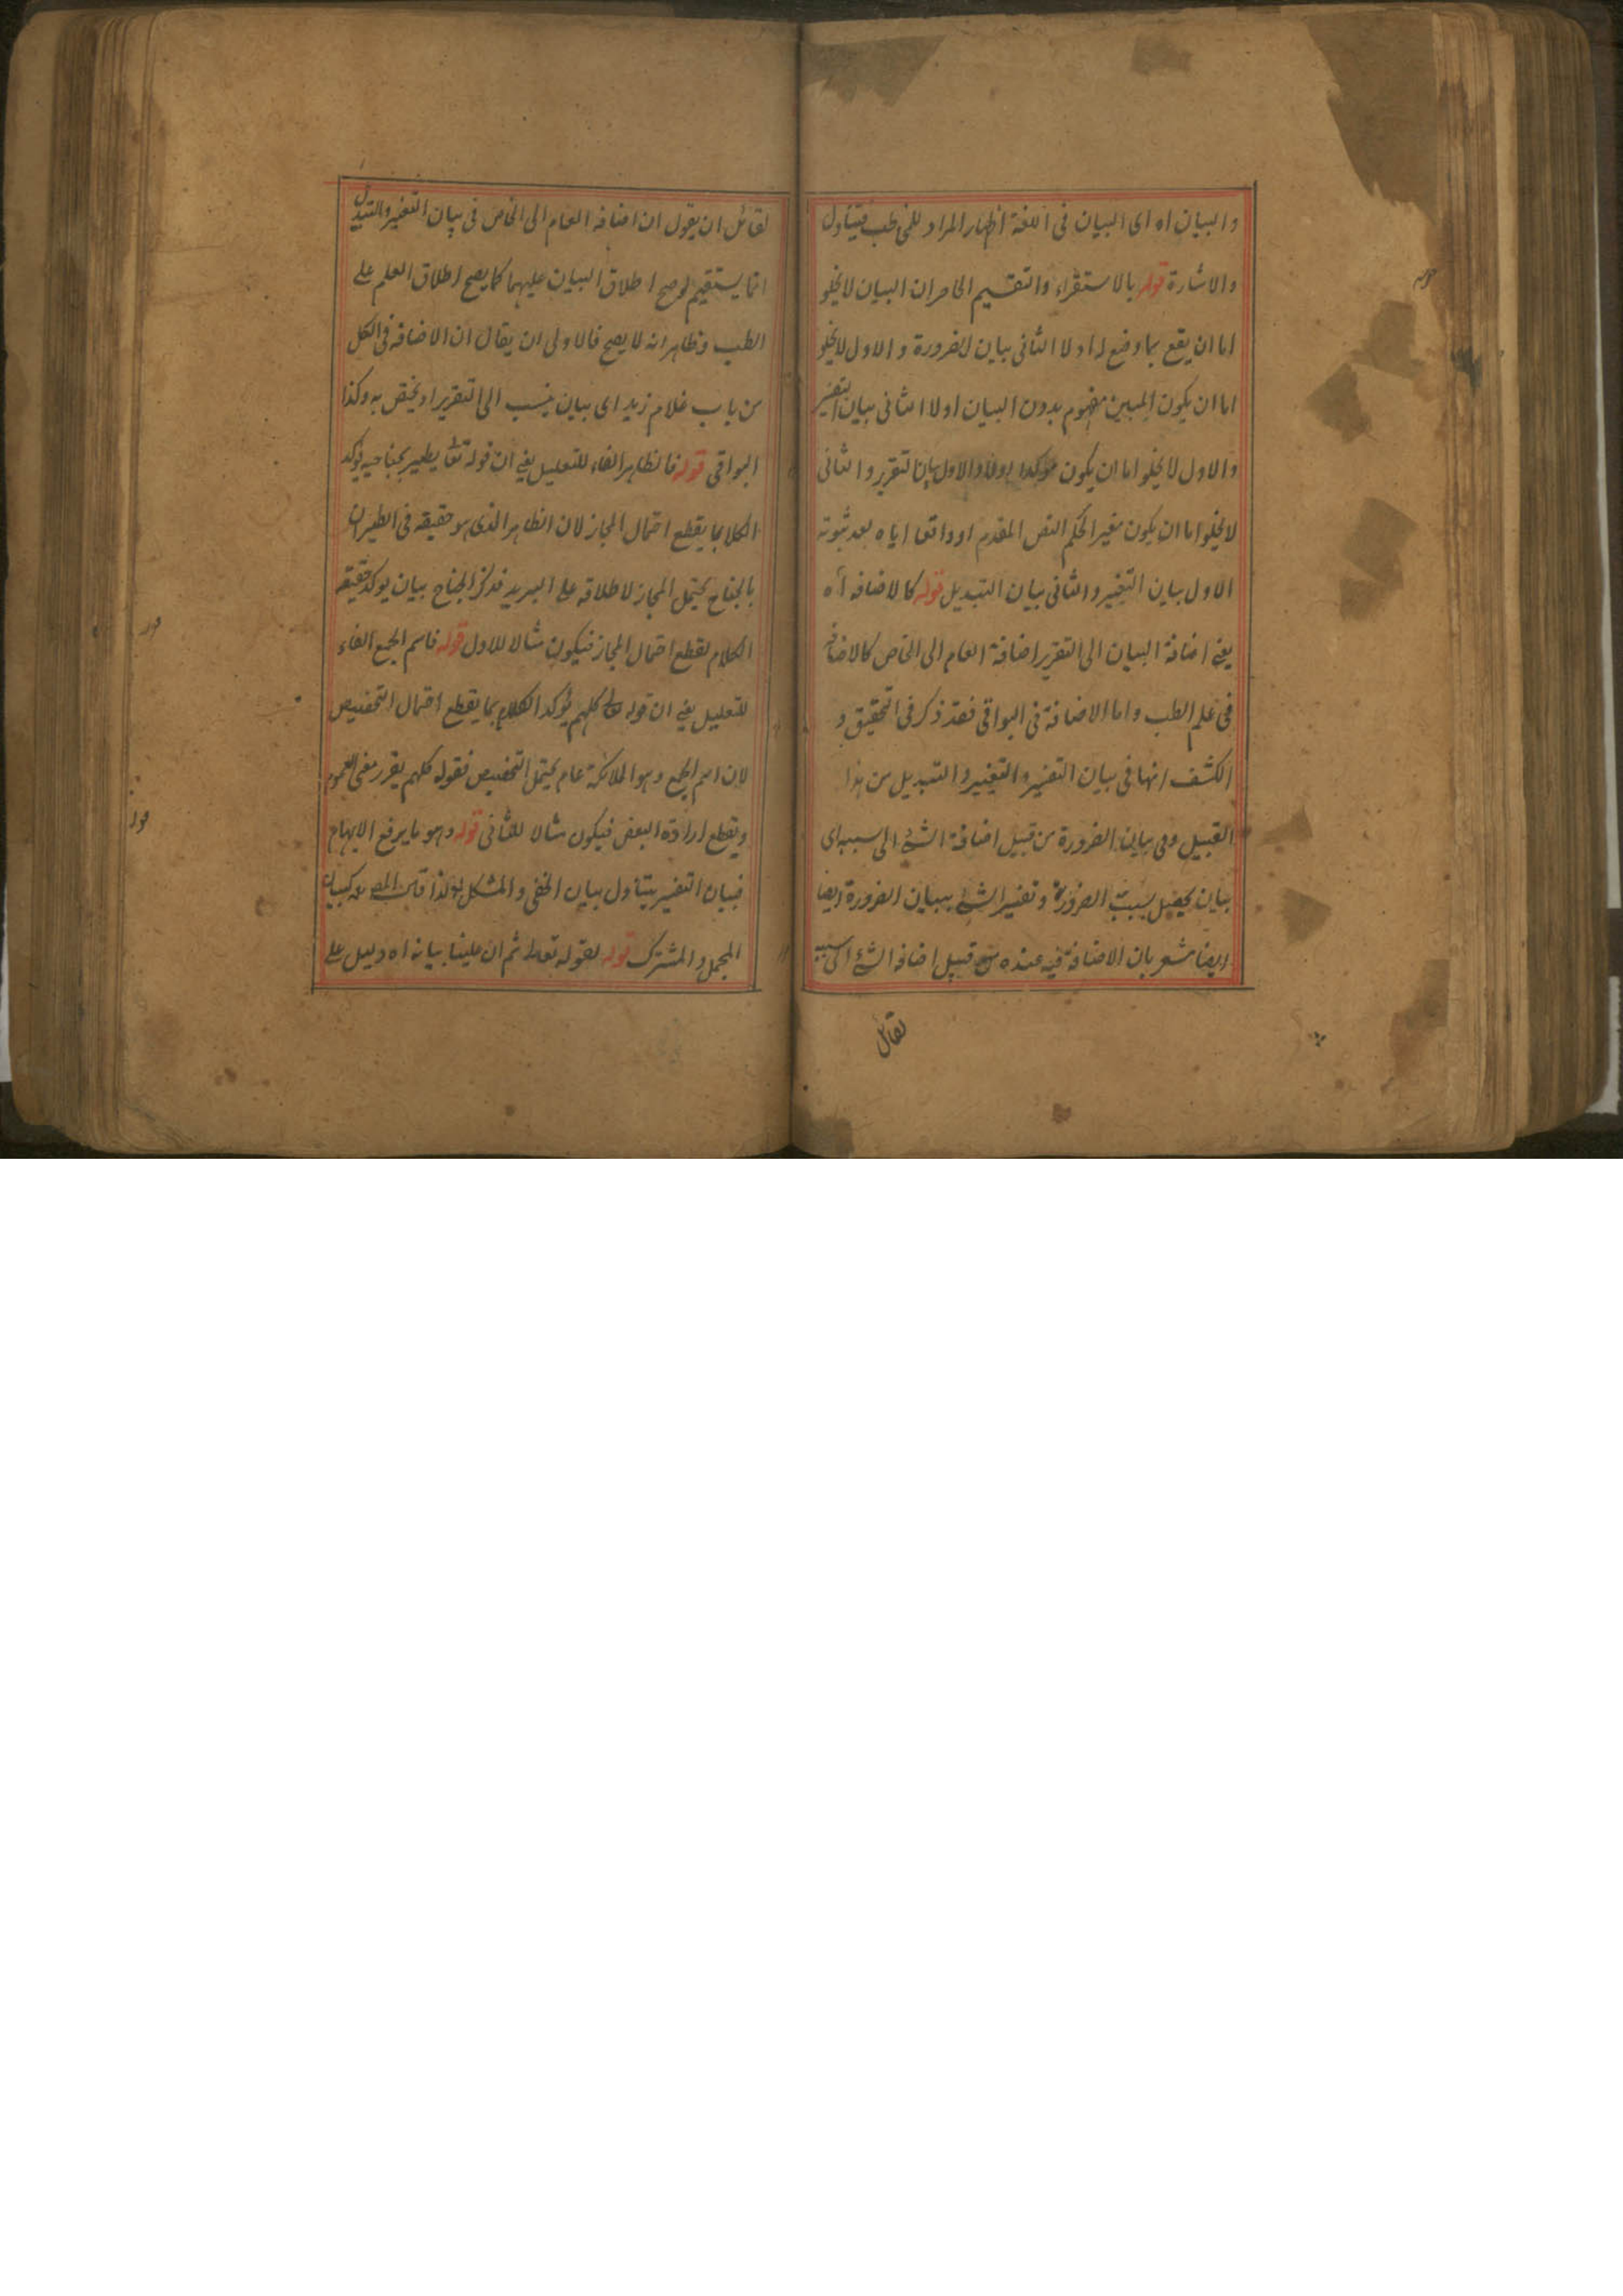 والبيان اه اى البيان فى اللغة اظهار المراد للمخاطب فيتناول
والاشارة قوله بالاستقراء والتقسيم الحاصر ان البيان لا يخلو
اما ان يقع بما وضع له او لا الثانى بيان الضرورة والاول لا يخلو
اما ان يكون المبين مفهوم بدون البيان او لا الثانى بيان التفسير
والاول لا يخلو اما ان يكون مؤكدا اولا والاول بيان التقرير والثانى
لا يخلو اما ان يكون مغير الحكم النص المقدم او رافعا اياه بعد ثبوته
الاول بيان التغيير والثانى بيان التبديل قوله كالاضافه اه
يعنى اضافة البيان الى التقرير اضافة العام الى الخاص كالاضافة
فى علم الطب واما الاضافة فى البواقى فقد ذكر فى التحقيق و
الكشف انها فى بيان التفسير والتغيير والتبديل من هذا
القبيل وفى بيان الضرورة من قبيل اضافة الشئ الى سببه اى
بيان يحصل بسبب الضرورة وتفسير الشئ ببيان الضرورة ايضا
ايضا مشعر بان الاضافة فيه عنده من قبيل اضافه الشئ الى سببه
لقائل
قوله
لقائل ان يقول ان اضافه العام الى الخاص فى بيان التغيير والتبديل
انما يستقيم لو صح اطلاق البيان عليهما كما يصح اطلاق العلم على
الطب وظاهر انه لا يصح فالاولى ان يقال ان الاضافه فى الكل
من باب غلام زيد اى بيان ينسب الى التقرير او يختص به وكذا
البواقى قوله فالظاهر الفاء للتعليل يعنى ان قوله تعا يطير بجناحيه يؤكد
الكلام بما يقطع احتمال المجاز لان الظاهر الذى هو حقيقه فى الطيران
بالجناح يحتمل المجاز لاطلاقه على البريد فذكر الجناح بيان يوكد حقيقه
الكلام لقطع احتمال المجاز فيكون مثالا للاول قوله فاسم الجمع الفاء
للتعليل يعنى ان قوله تعا كلهم يؤكد الكلام بما يقطع احتمال التخصيص
لان اسم الجمع وهو الملائكة عام يحتمل التخصيص فقوله كلهم يقرر معنى العموم
ويقطع ارادة البعض فيكون مثالا للثانى قوله وهو ما يرفع الابهام
فبيان التفسير يتناول بيان الخفى والمشكل ولذا قال المص كبيان
المجمل والمشترك قوله لقوله تعالى ثم ان علينا بيانه اه دليل على
قوله